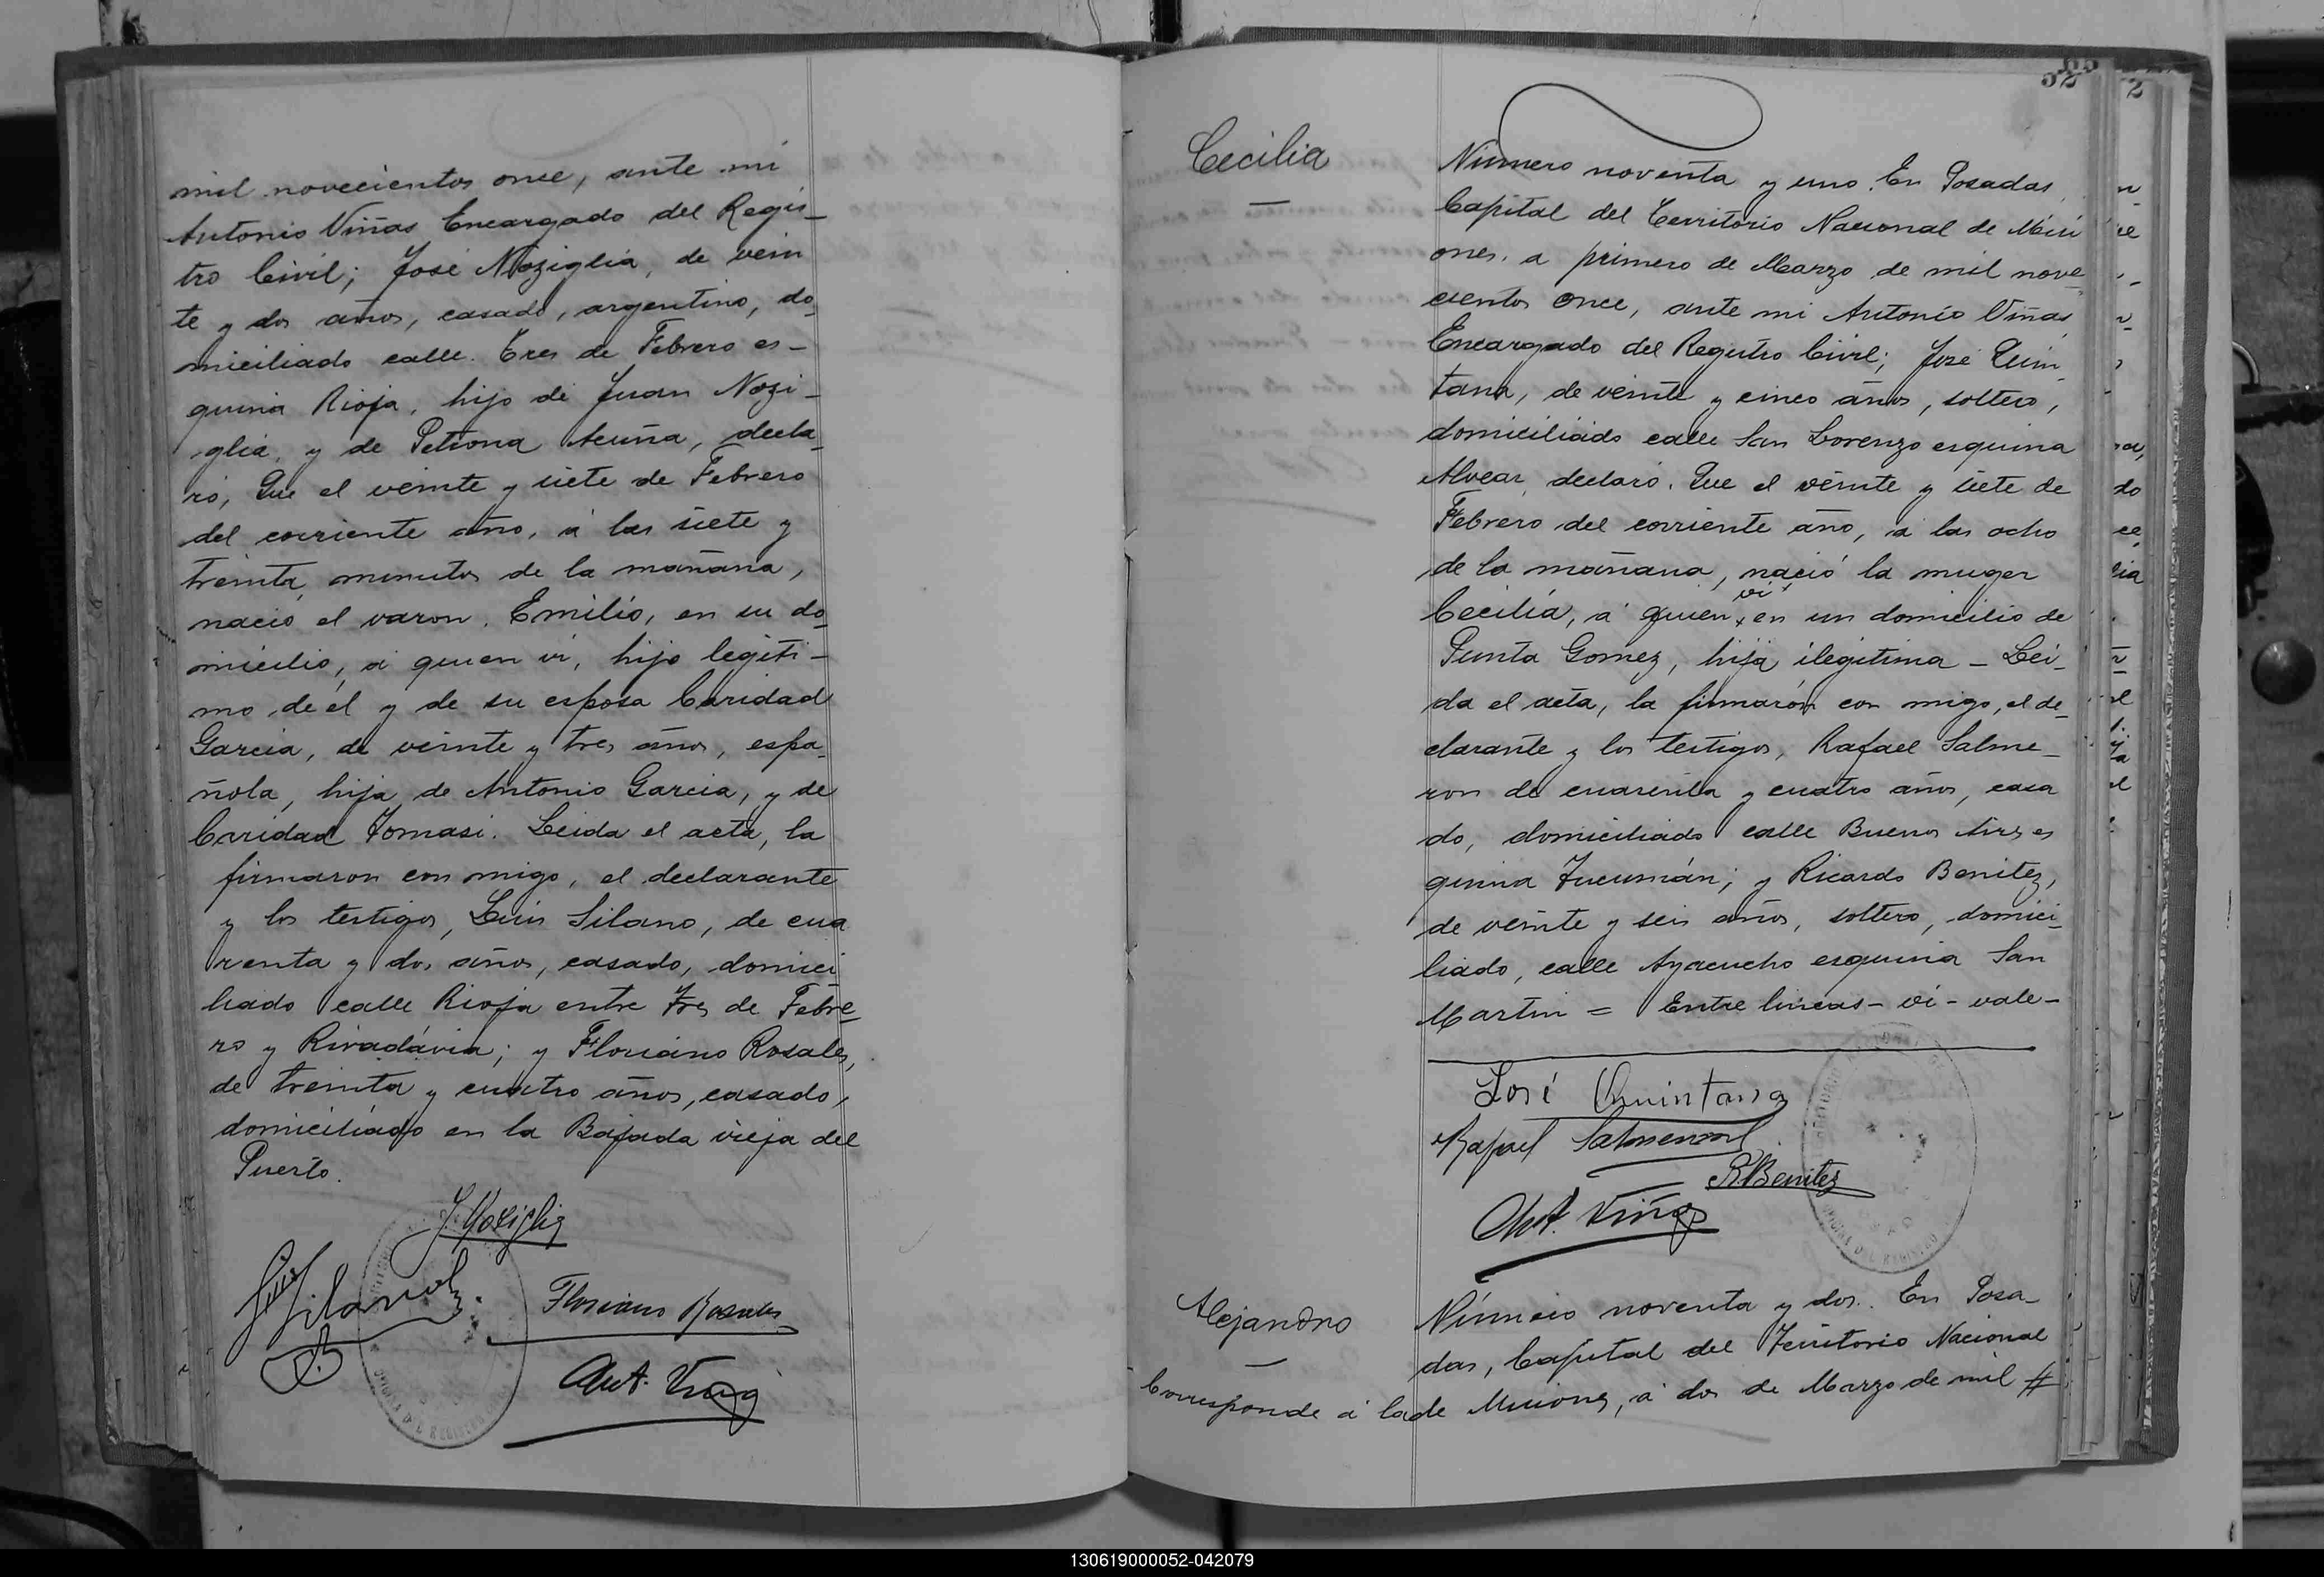 mil novecientos once, ante mi
Antonio Viñas Encargado del Regis-
tro Civil; José Noziglia, de vein
te y dos años, casado, argentino, do-
miciliado calle Tres de Febrero es-
quina Rioja, hijo de Juan Nozi-
glia, y de Petrona Acuña, decla-
ró, Que el veinte y siete de Febrero
del corriente año, á las siete y
treinta minutos de la mañana,
nació el varon, Emilio, en su do-
micilio, á quien vi, hijo legiti-
mo de él y de su esposa Caridad
Garcia, de veinte y tres años, espa-
ñola, hija de Antonio Garcia, y de
Caridad Tomasi. Leida el acta, la
firmaron con migo, el declarante
y los testigos, Luis Silano, de cua
renta y dos años, casado, domici
liado calle Rioja entre Tres de Febre-
ro y Rivadávia; y Floriano Rosales,
de treinta y cuatro años, casado,
domiciliado en la Bajada vieja del
Puerto.
J. Noziglia
Luis Silano
Floriano Rosales
Ant. Viñas
52
2
Cecilia
Número noventa y uno. En Posadas,
Capital del Territorio Nacional de Misi
ones, a primero de Marzo de mil nove-
cientos once, ante mi Antonio Viñas
Encargado del Registro Civil; José Quin-
tana, de veinte y cinco años, soltero,
domiciliado calle San Lorenzo esquina
Alvear, declaró. Que el veinte y siete de
Febrero del corriente año, á las ocho
de la mañana, nació la muger
vi
Cecilia, á quien x en un domicilio de
Punta Gomez, hija ilegitima - Lei-
da el acta, la firmarón con migo, el de-
clarante y los testigos, Rafael Salme-
ron de cuarenta y cuatro años, casa
do, domiciliado calle Buenos Aires es
quina Tucumán; y Ricardo Benitez,
de veinte y seis años, soltero, domici-
liado, calle Ayacucho esquina San
Martin = Entre lineas - vi - vale -
José Quintana
Rafael Salmeron
R. Benitez
Ant. Viñas
OFICINA DEL REGISTRO
Alejandro
Número noventa y dos. En Posa-
das, Capital del Territorio Nacional
Corresponde á la de Misiones, á dos de Marzo de mil #
130619000052-042079